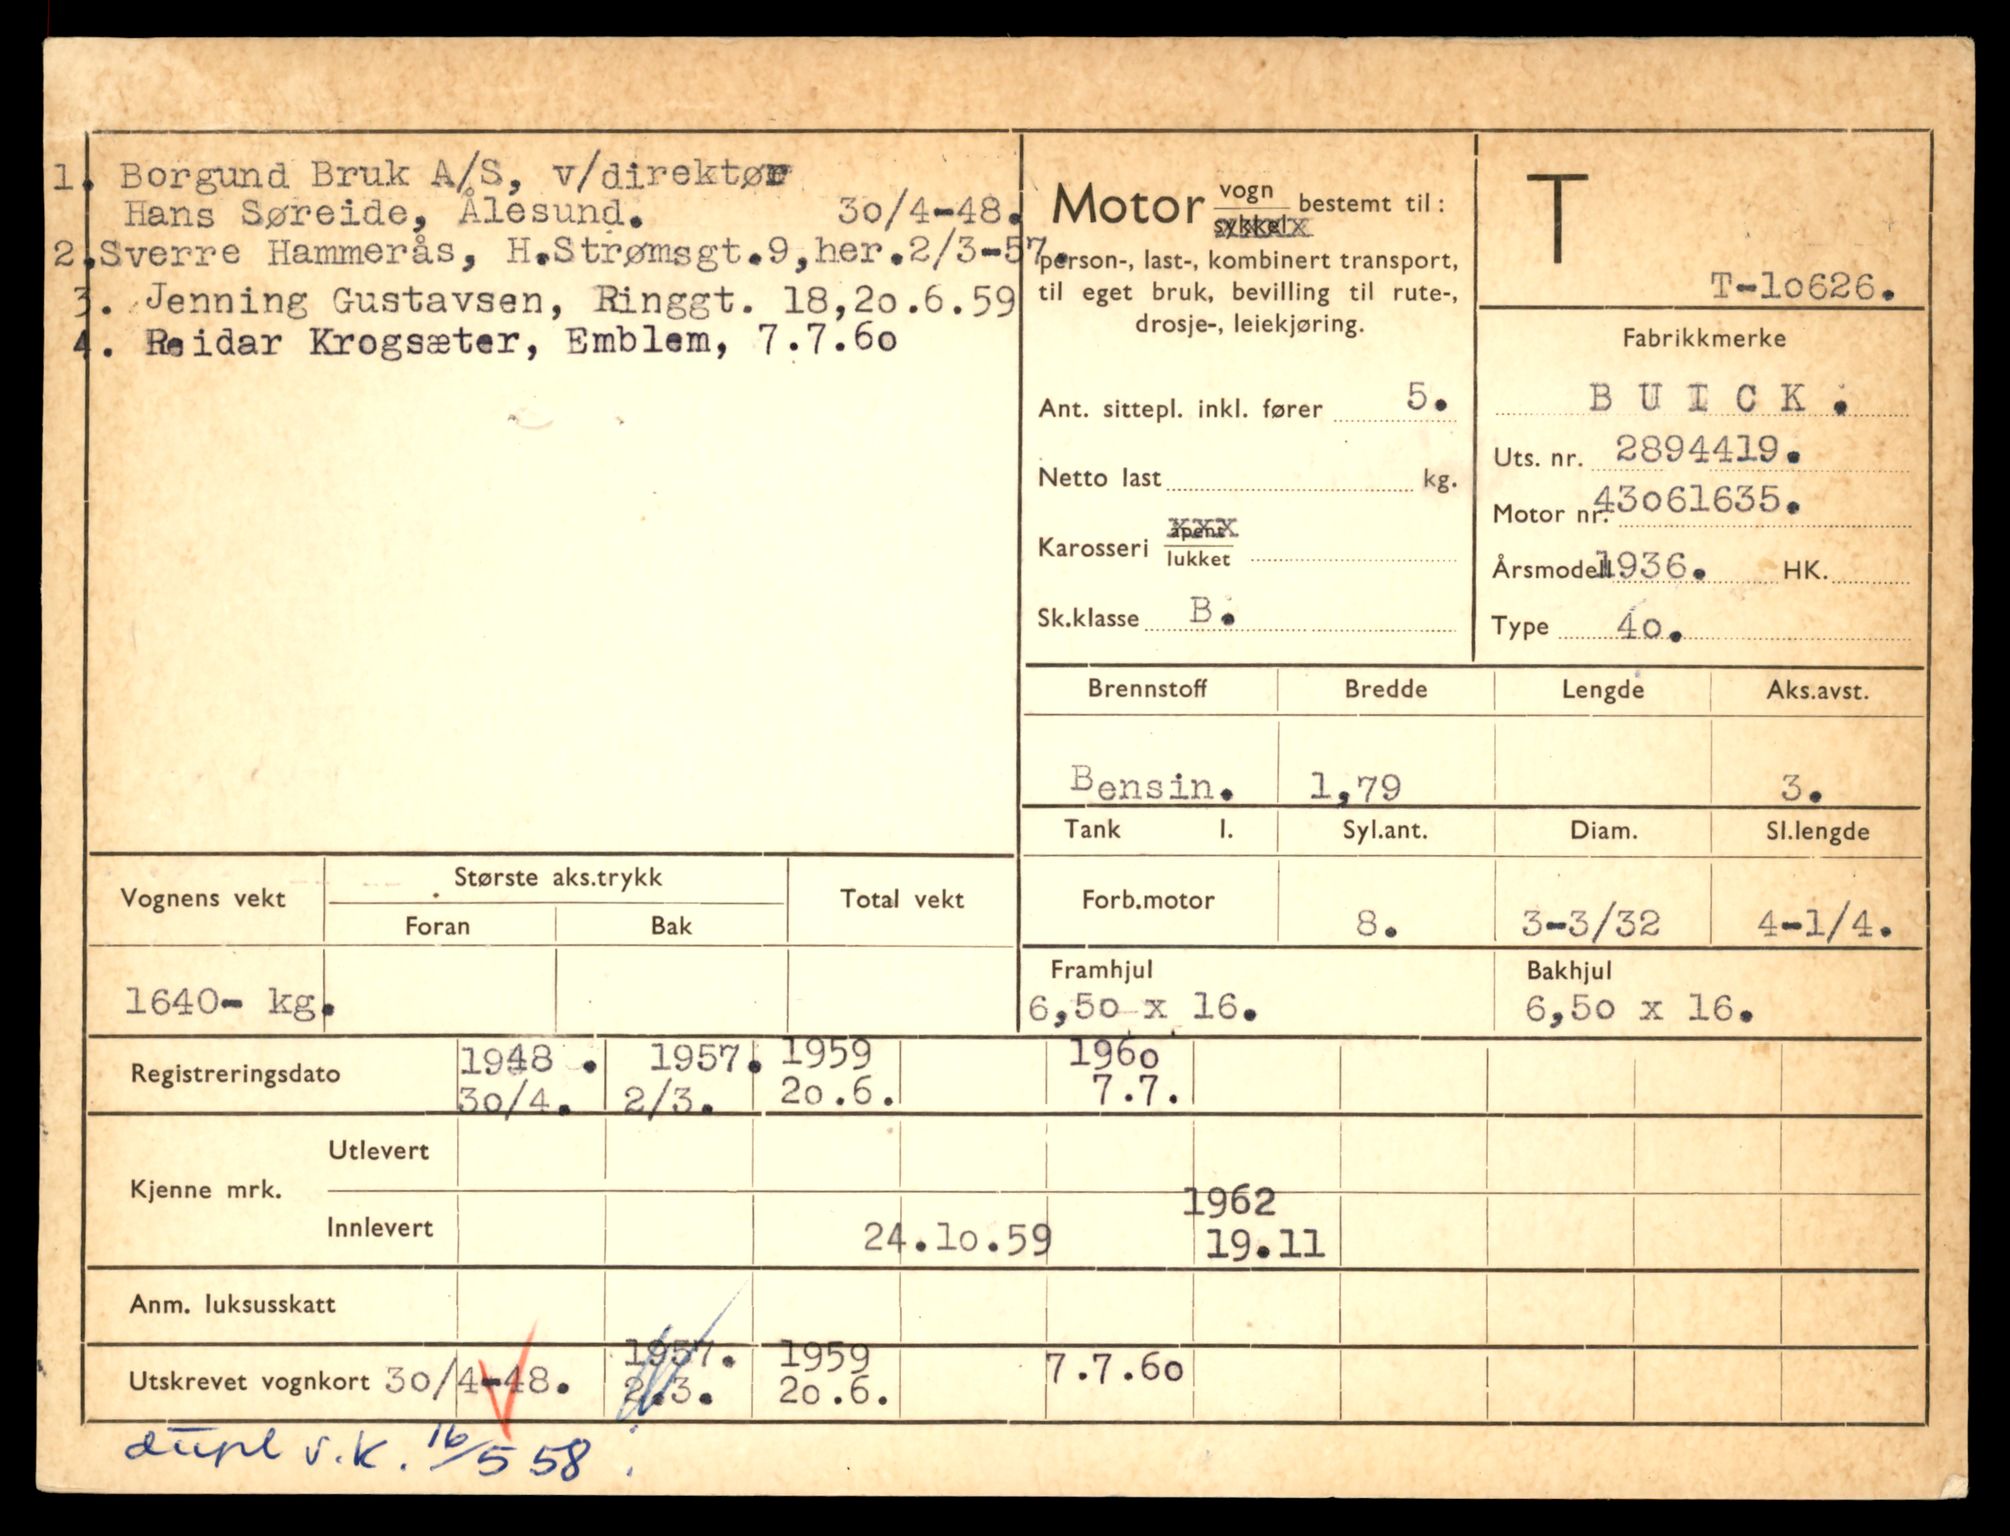 1. Borgund Bruk A/S, v/direktør
Hans Søreide, Ålesund. 30/4-48.
2. Sverre Hammerås, H.Strømsgt.9, her. 2/3-57.
3. Jenning Gustavsen, Ringgt. 18, 20.6.59
4. Reidar Krogsæter, Emblem, 7.7.60
Motor vogn bestemt til:
sykkel
person-, last-, kombinert transport,
til eget bruk, bevilling til rute-,
drosje-, leiekjøring.
Ant. sittepl. inkl. fører 5.
Netto last kg.
Karosseri åpent
lukket
Sk.klasse B.
T
T-10626.
Fabrikkmerke
BUICK.
Uts. nr. 2894419.
Motor nr. 43061635.
Årsmodell 1936. HK.
Type 40.
Brennstoff Bredde Lengde Aks.avst.
Bensin. 1,79 3.
Tank l. Syl.ant. Diam. Sl.lengde
Forb.motor 8. 3-3/32 4-1/4.
Framhjul Bakhjul
6,50 x 16. 6,50 x 16.
Vognens vekt Største aks.trykk Total vekt
Foran Bak
1640- kg.
Registreringsdato 1948. 1957. 1959 1960
30/4. 2/3. 20.6. 7.7.
Kjenne mrk. Utlevert
Innlevert 24.10.59 1962
19.11
Anm. luksusskatt
Utskrevet vognkort 30/4-48. 1957. 1959 7.7.60
2.3. 20.6.
dupl v.k. 16/5 58.